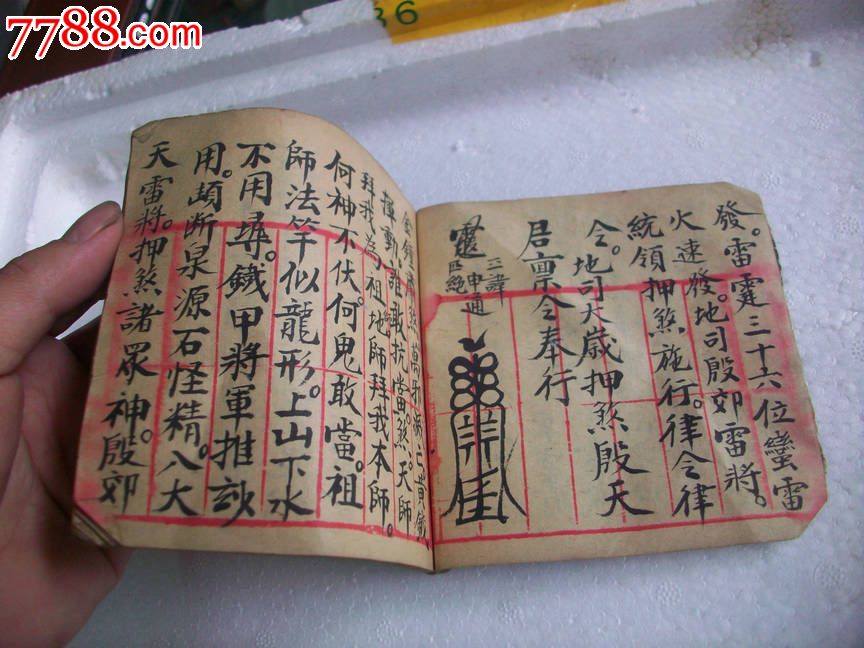 7788.com
36
發。雷霆三十六位蠻雷
火速發。地司殷郊雷將。
統領押煞施行。律令律
令。地司大歲押煞殷天
居稟令奉行
三諱
申通
金鐘
揮動。誰敢抗當煞。天師
拜我為祖地師拜我本師。
何神不伏。何鬼敢當。祖
師法竿似龍形。上山下水
不用尋。鐵甲將軍推
用。斷泉源石怪精。八大
天雷將。押煞諸眾神殷郊